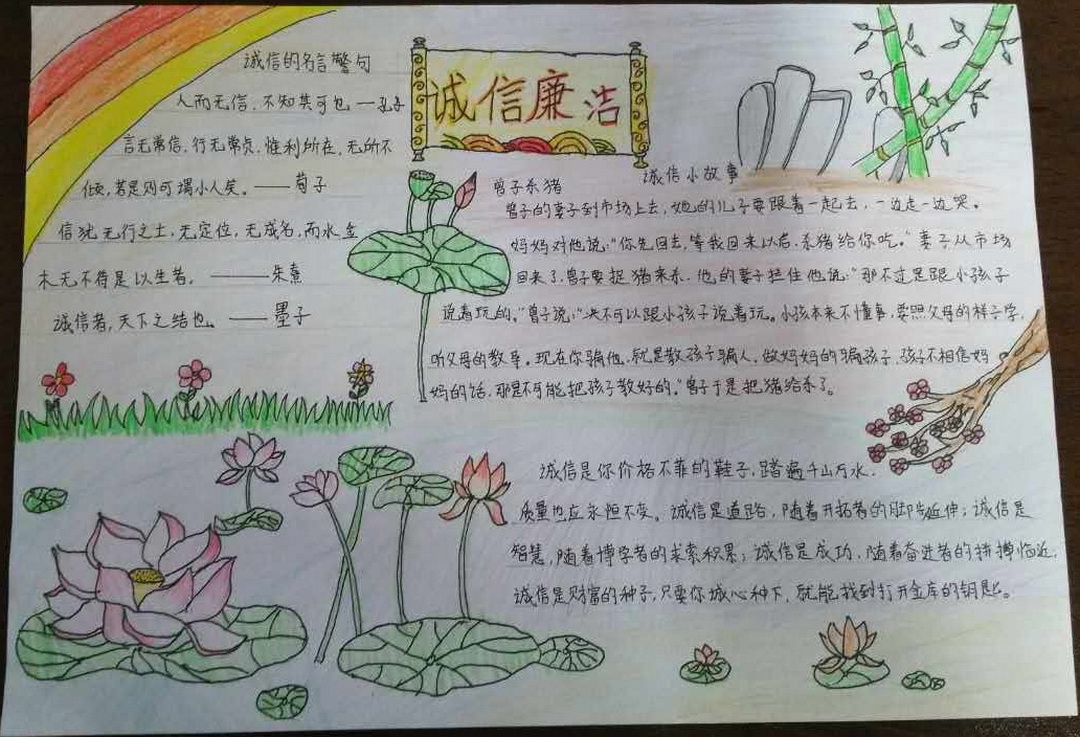 诚信的名言警句
人而无信,不知其可也 —孔子
言无常信,行无常贞,惟利所在,无所不
倾,若是则可谓小人矣。——荀子
信犹无行之土,无定位,无成名,而水金
木无不待是以生者。———朱熹
诚信者,天下之结也。——墨子
诚信廉洁
诚信小故事
曾子杀猪
曾子的妻子到市场上去,她的儿子要跟着一起去,一边走一边哭。
妈妈对他说:“你先回去,等我回来以后,杀猪给你吃。”妻子从市场
回来了,曾子要捉猪来杀,他的妻子拦住他说:“那不过是跟小孩子
说着玩的。”曾子说:“决不可以跟小孩子说着玩。小孩本来不懂事,要照父母的样子学,
听父母的教导。现在你骗他,就是教孩子骗人,做妈妈的骗孩子,孩子不相信妈
妈的话,那是不可能把孩子教好的。”曾子于是把猪给杀了。
诚信是你价格不菲的鞋子,踏遍千山万水,
质量也应永恒不变。诚信是道路,随着开拓者的脚步延伸;诚信是
智慧,随着博学者的求索积累;诚信是成功,随着奋进者的拼搏临近;
诚信是财富的种子,只要你诚心种下,就能找到打开金库的钥匙。